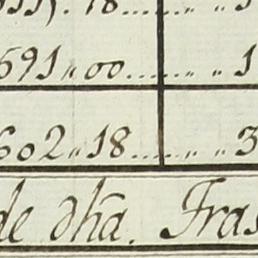 591,,00...... ,, ,, 1
602,,18...... ,, ,, 3
de dhã. Fras